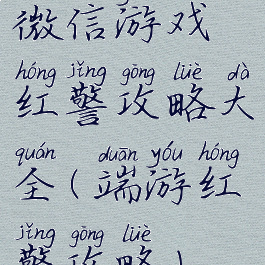 微信游戏
hóng jǐng gōng lüè dà
红警攻略大
quán duān yóu hóng
全(端游红
jǐng gōng lüè
警攻略)